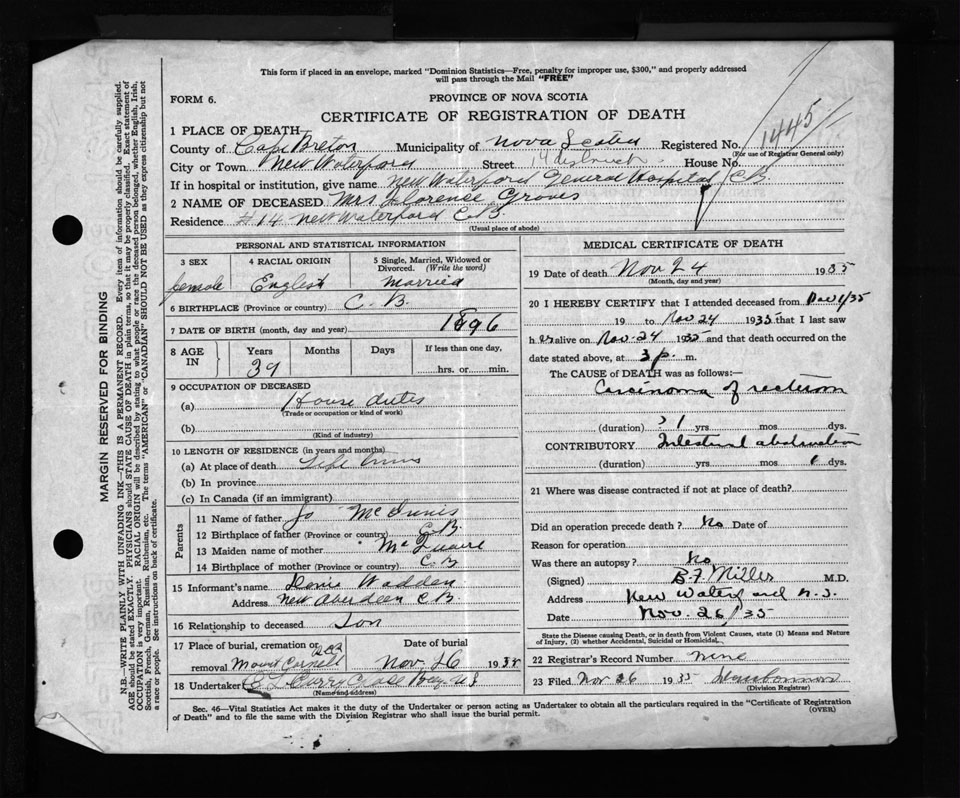 This form if placed in an envelope, marked "Dominion Statistics—Free, penalty for improper use, $300," and properly addressed
will pass through the Mail "FREE"
FORM 6.
PROVINCE OF NOVA SCOTIA
CERTIFICATE OF REGISTRATION OF DEATH
1 PLACE OF DEATH
County of Cape Breton Municipality of Nova Scotia Registered No. 1445
(For use of Registrar General only)
City or Town New Waterford Street House No.
If in hospital or institution, give name New Waterford General Hospital CB
2 NAME OF DECEASED Mrs Florence Groves
Residence #14 New Waterford CB
(Usual place of abode)
PERSONAL AND STATISTICAL INFORMATION
3 SEX
female
4 RACIAL ORIGIN
English
5 Single, Married, Widowed or
Divorced. (Write the word)
Married
6 BIRTHPLACE (Province or country) C. B.
7 DATE OF BIRTH (month, day and year) 1896
8 AGE
IN
Years
39
Months
Days
If less than one day,
hrs. or min.
9 OCCUPATION OF DECEASED
(a) House duties
(Trade or occupation or kind of work)
(b)
(Kind of industry)
10 LENGTH OF RESIDENCE (in years and months)
(a) At place of death Life
(b) In province
(c) In Canada (if an immigrant)
Parents
11 Name of father Jo McInnis
12 Birthplace of father (Province or country) C B
13 Maiden name of mother
14 Birthplace of mother (Province or country) C B
15 Informant's name Wadden
Address New Aberdeen C B.
16 Relationship to deceased Son
17 Place of burial, cremation or
removal Mount Carmel
Date of burial
Nov. 26 193
18 Undertaker Curry Glace Bay N S
(Name and address)
MEDICAL CERTIFICATE OF DEATH
19 Date of death Nov 24 1935
(Month, day and year)
20 I HEREBY CERTIFY that I attended deceased from Nov 1/35
19 to Nov 24 1935 that I last saw
her alive on Nov. 24 1935 and that death occurred on the
date stated above, at 3 p. m.
The CAUSE of DEATH was as follows:
Carcinoma of rectum
(duration) ? 1 yrs. mos. dys.
CONTRIBUTORY Intestinal obstruction
(duration) yrs mos dys.
21 Where was disease contracted if not at place of death?
Did an operation precede death? No Date of
Reason for operation
Was there an autopsy? No
(Signed) B. F. Miller M.D.
Address New Waterford N. S.
Date Nov. 26/35
State the Disease causing Death, or in death from Violent Causes, state (1) Means and Nature
of Injury, (2) whether Accidental, Suicidal or Homicidal.
22 Registrar's Record Number nine
23 Filed Nov 26 1935
(Division Registrar)
Sec. 46—Vital Statistics Act makes it the duty of the Undertaker or person acting as Undertaker to obtain all the particulars required in the "Certificate of Registration
of Death" and to file the same with the Division Registrar who shall issue the burial permit.
(OVER)
MARGIN RESERVED FOR BINDING
N.B.—WRITE PLAINLY WITH UNFADING INK—THIS IS A PERMANENT RECORD. Every item of information should be carefully supplied.
AGE should be stated EXACTLY. PHYSICIANS should STATE CAUSE OF DEATH in plain terms, so that it may be properly classified. Exact statement of
OCCUPATION is very important. RACIAL ORIGIN will be described by stating to what people or race the deceased person belonged, whether English, Irish,
Scottish, French, German, Russian, Ruthenian, etc. The terms "AMERICAN" or "CANADIAN" SHOULD NOT BE USED as they express citizenship but not
a race or people. See instructions on back of certificate.